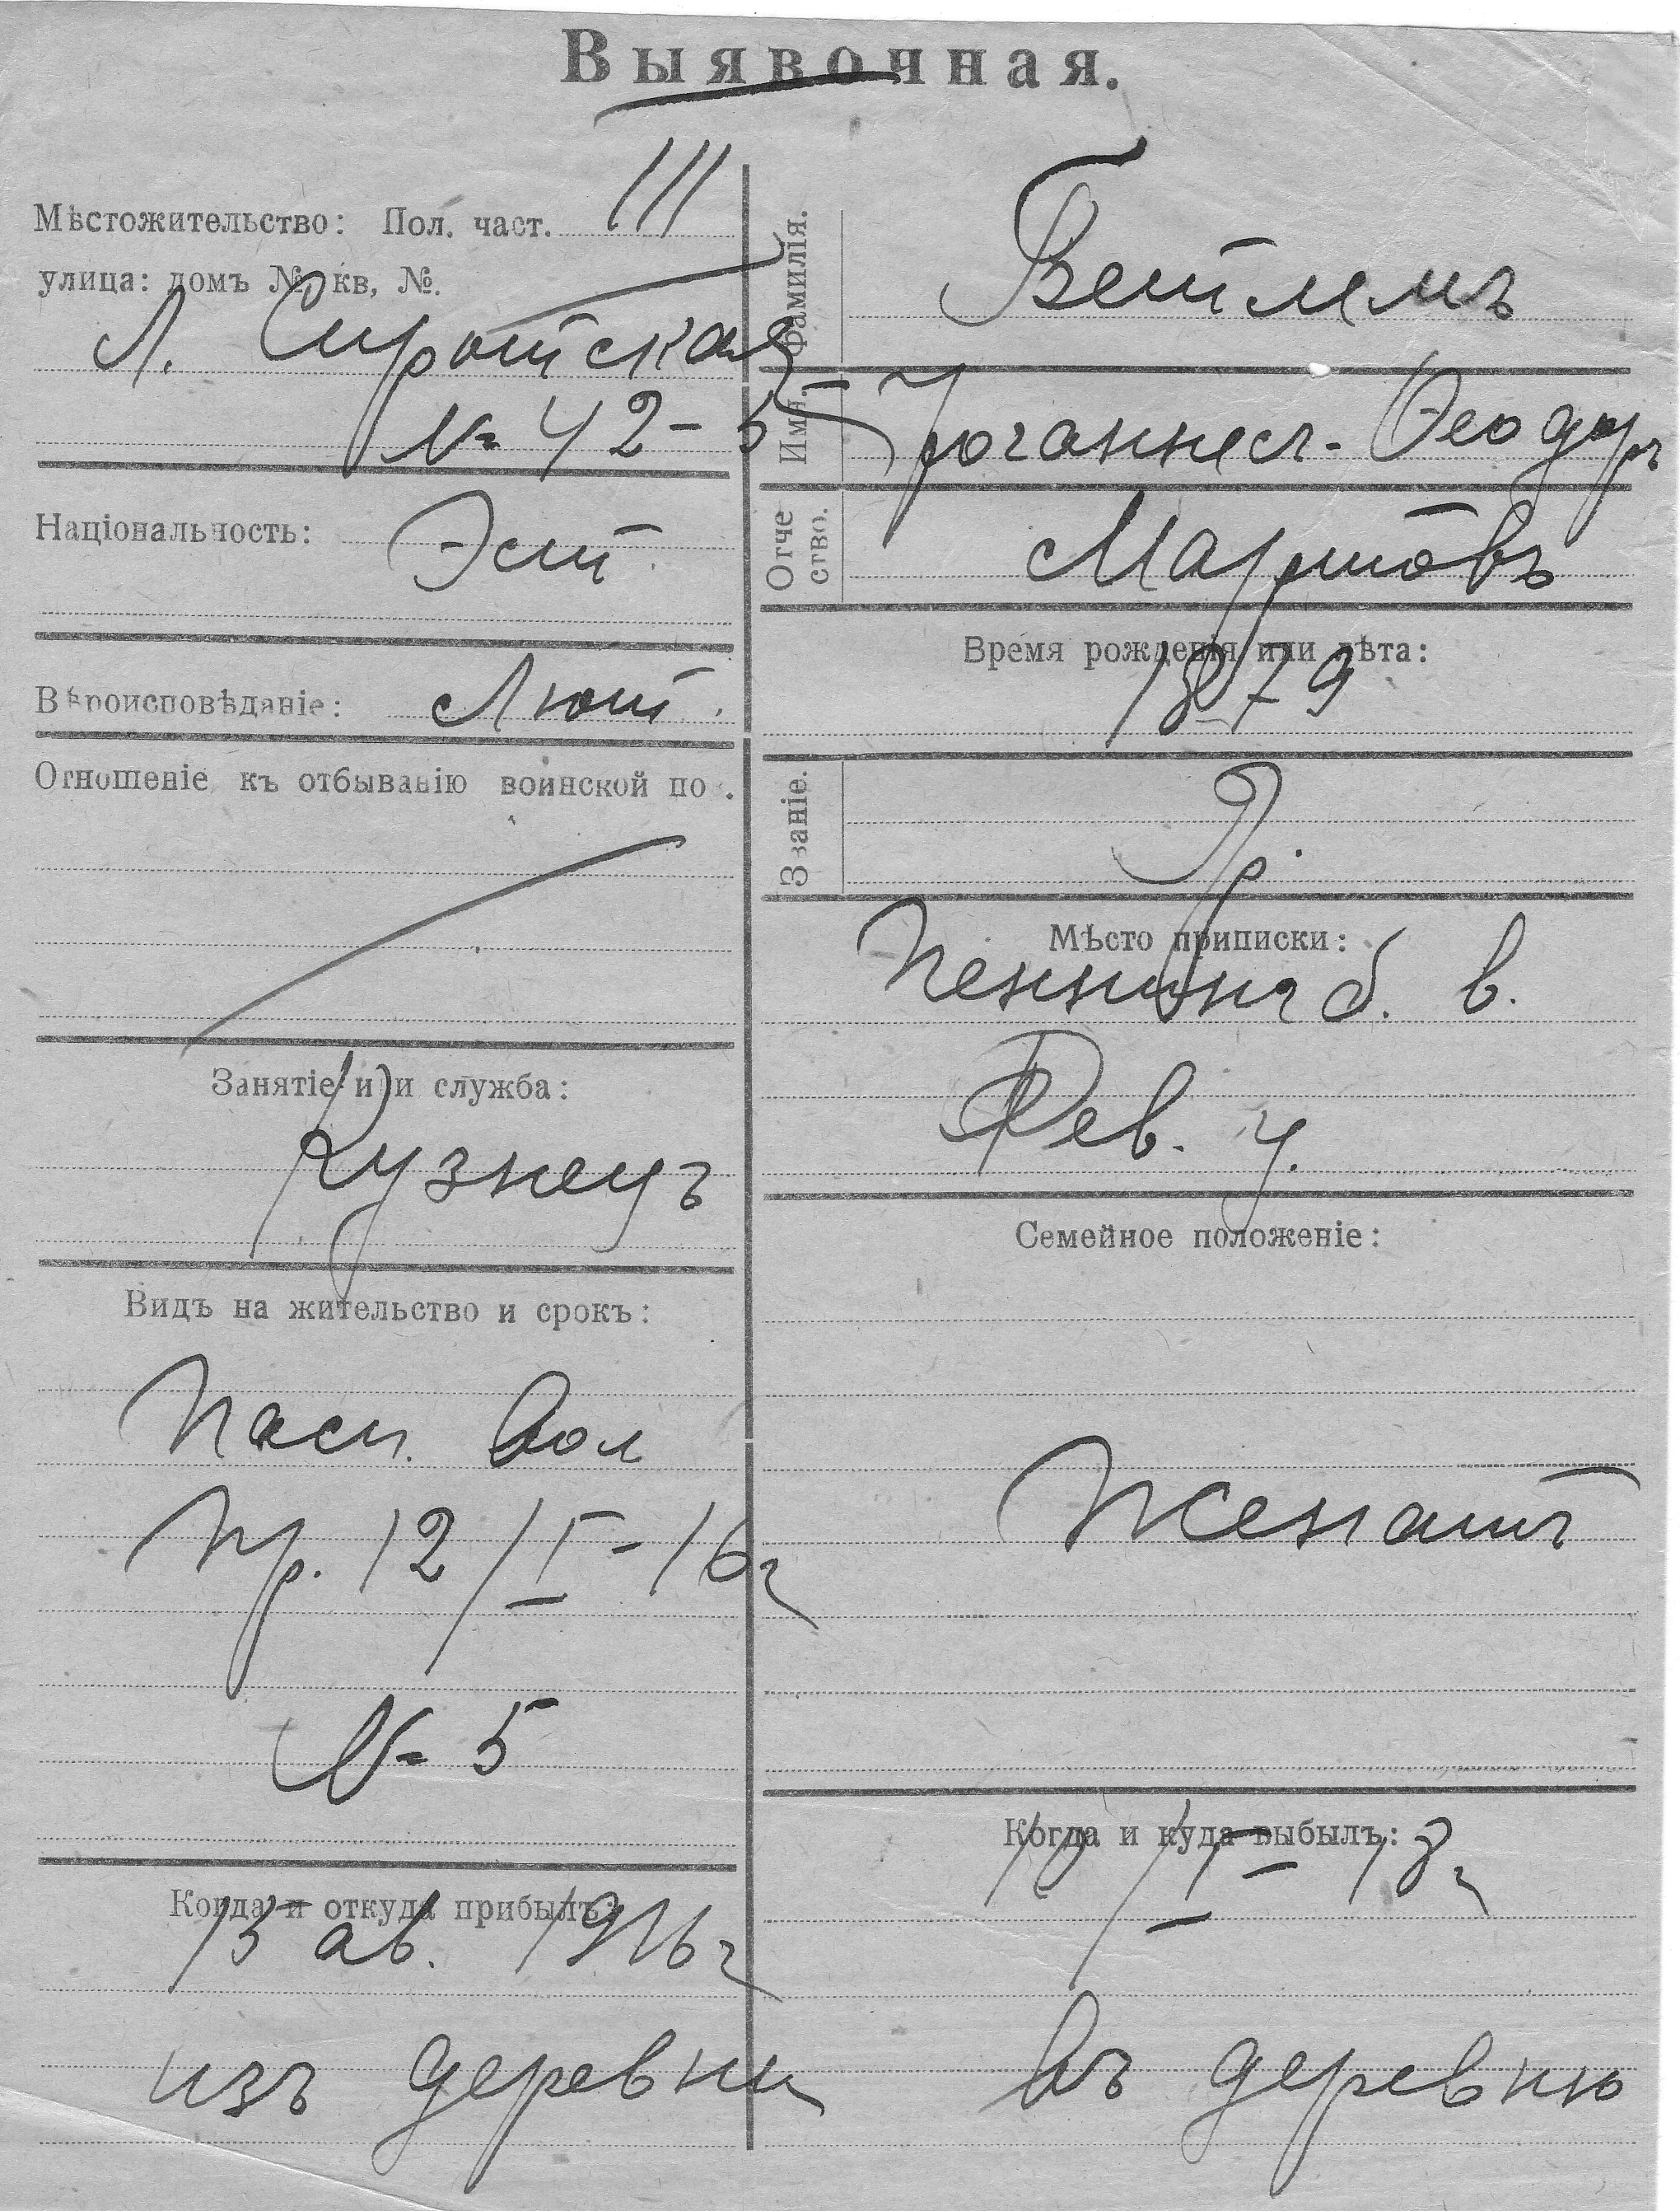 Выявочная.
Мѣстожительство: Пол. част. III
улица: домъ № кв, №.
Л. Сиротская
№ 42-5
Національность: Эст.
Вѣроисповѣданіе: Лют.
Отношеніе къ отбыванію воинской по .
Занятіе и и служба:
Кузнецъ
Видъ на жительство и срокъ:
Пасп. Вол
Пр. 12/I-16 г
№ 5
Когда и откуда прибылъ:
15 ав. 1916 г
изъ деревни
Фамилія.
Имя.
Іоганнес-Теодоръ
Отчество.
Мартовъ
Время рожденія или лѣта:
1879
Званіе.
Мѣсто приписки:
б. в.
у.
Семейное положеніе:
Женатъ
Когда и куда выбылъ:
10/I-18 г
въ деревню